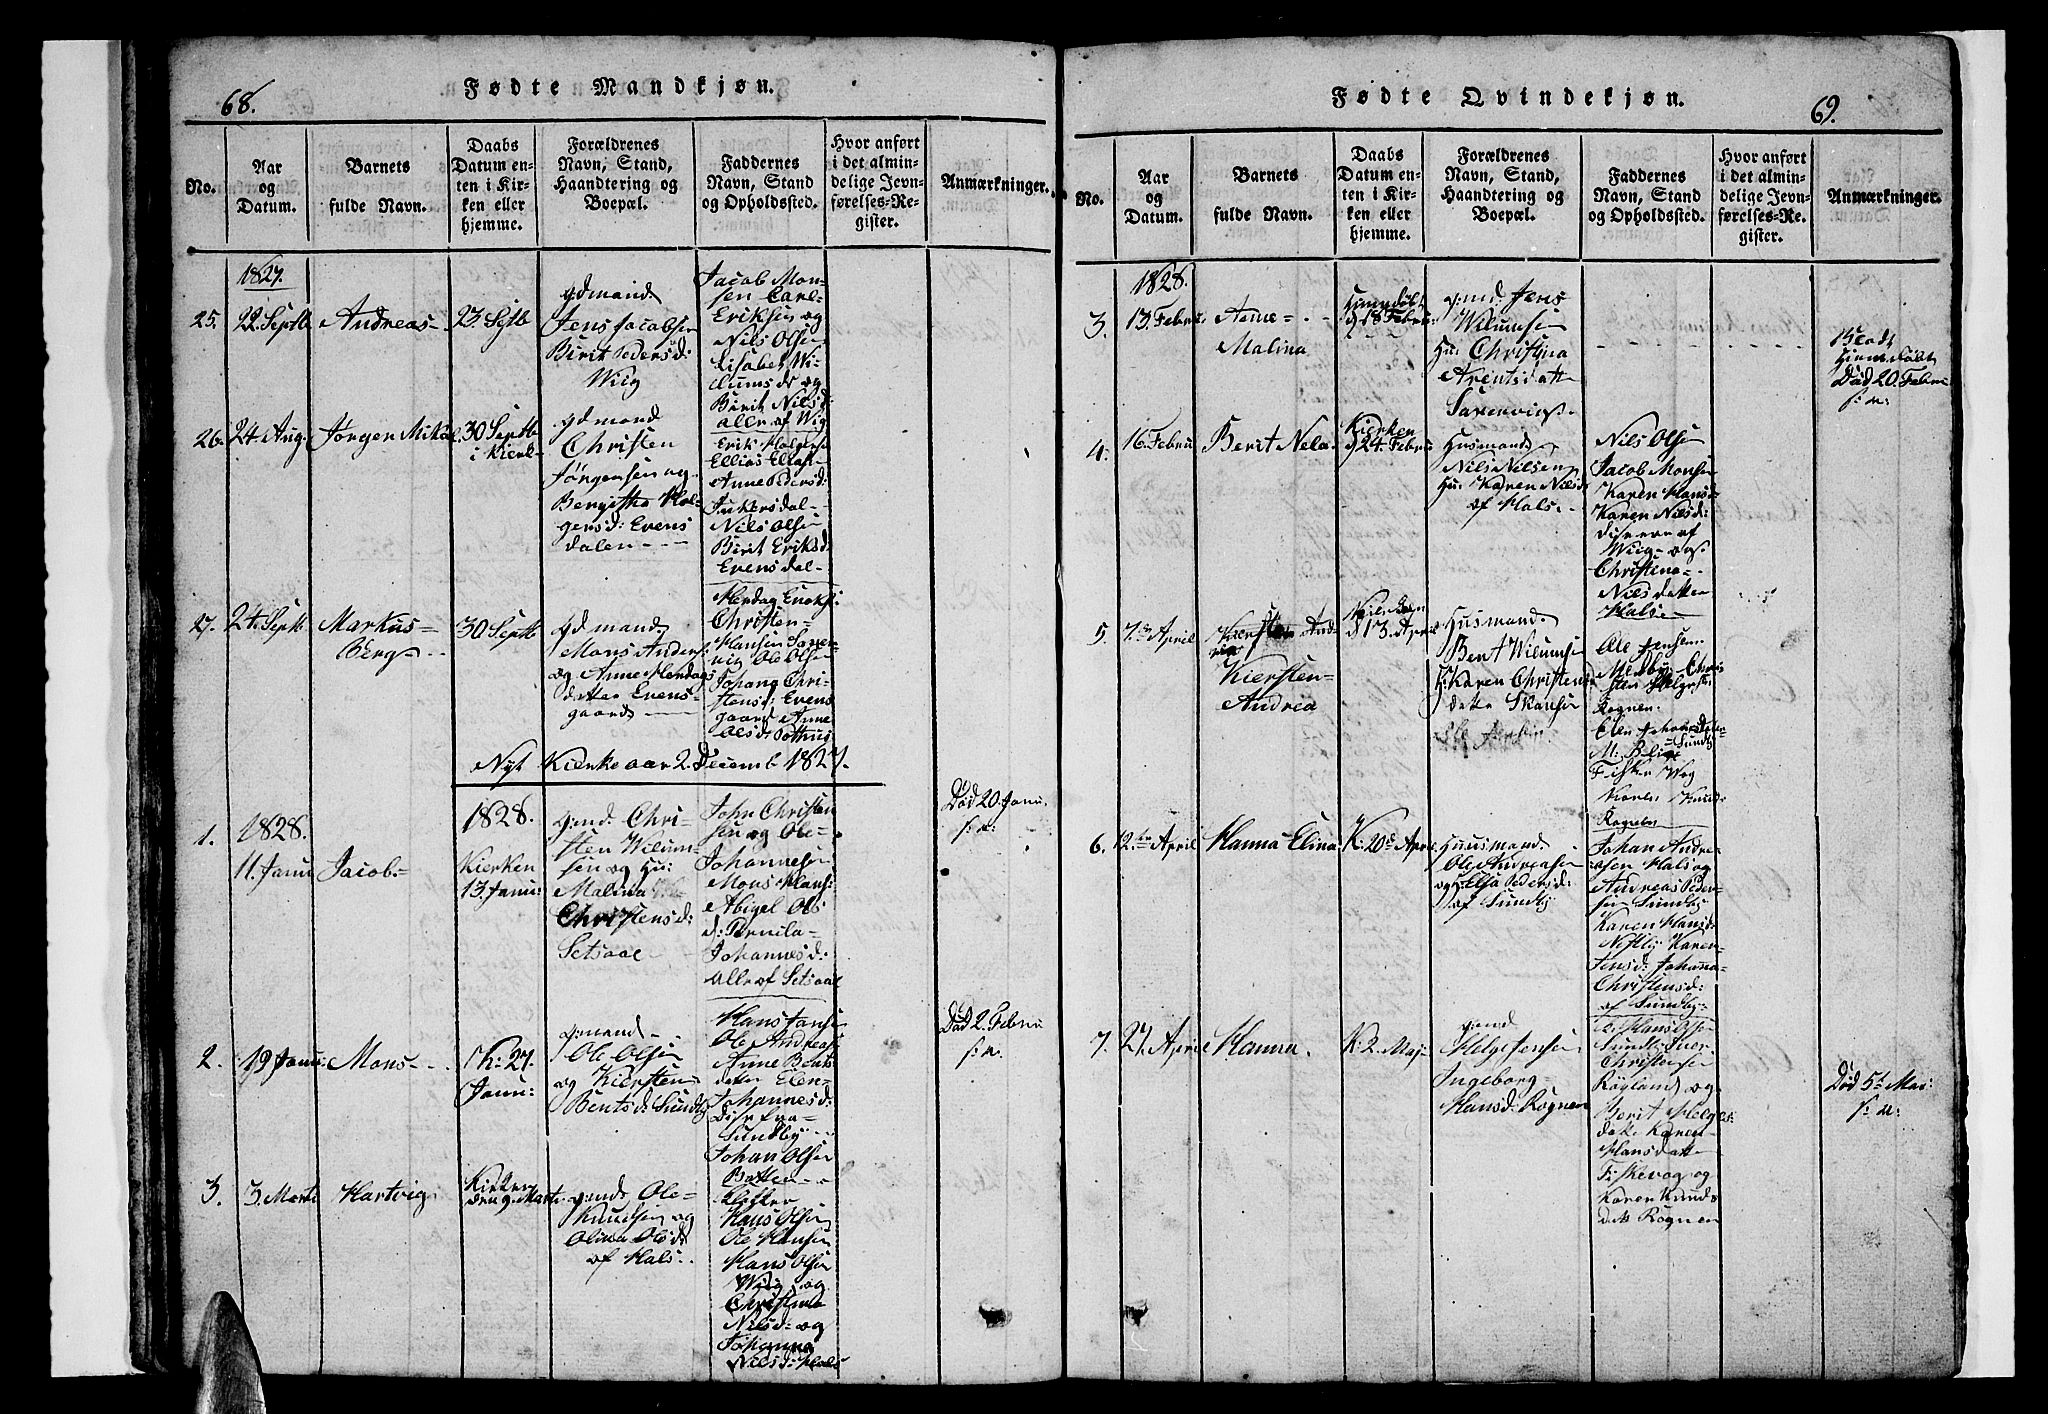 68.
Fødte Mandkjøn.
No.
Aar
og
Datum.
Barnets
fulde Navn.
Daabs
Datum en-
ten i Kir-
ken eller
hjemme.
Forældrenes
Navn, Stand,
Haandtering og
Boepæl.
Faddernes
Navn, Stand
og Opholdssted.
Hvor anført
i det almin-
delige Jevn-
førelses-Re-
gister.
Anmærkninger.
1827.
25.
22. Septb
Andreas
23. Septb
gdmand
Jens Jacobsen
Birit Peders d:
Wiig
Jacob Mon-
sen Carl-
Eriksen og
Nils Olsen
Lisabet Wi-
lumsd og
Birit Nilsd
alle af Wiig
26.
24. Aug.
Jørgen Mikal
30 Septb
i Kierk
gdmand
Christen
Jörgensen og
Bergitha Hol-
gersd: Evens
dalen
Erik Holgersen
Ellias Ellas
Anne Pedersd:
Junkersdal
Nils Olsen
Birit Eriksd
Evensdal
27.
24. Septb
Markus
Berg
30 Septb
gdmand
Mons Anders
og Anne Herdags
datter Evens-
gaard
Herdag Enoks:
Christen
Hansen Saxen-
vig Ole Olsen
Johana Chri-
stensd: Evens
gaard Anne
Olsd: Pothus
Nyt Kierkeaar 2. Decemb 1827.
1828.
1.
11. Janu
Jacob
1828.
Kierken
13. Janu:
gmd: Chri-
sten Wilum-
sen og Hu:
Malina
Christensd:
Setsaae
John Christen
sen og Ole
Johannesen
Mons Hans:
Abigel Ols
d: Pernila
Johannesd:
alle af Setsaae
Död 20. Janu.
s: a:
2.
19 Janu:
Mons
K: 27.
Janu:
g:mand
Ole Olsen
og Kiersten
Bentsd: Sundby
Hans Jansen
Ole Andreas
Anne Bents
datter Elen
Johannesd:
Disse fra
Sundby
Johan Olsen
Botten
Död 2. Febru
s: a:
3.
3. Marti
Hartvig
Kirken
den 9. Marti
g:md: Ole
Knudsen og
Olina Olsd
af Hals
Hans Olsen
Ole Hansen
Hans Olsen
Wiig og
Christina
Nilsd: og
Johanna
Nilsd: Hals
Fødte Qvindekjøn.
69.
No.
Aar
og
Datum.
Barnets
fulde Navn.
Daabs
Datum en-
ten i Kir-
ken eller
hjemme.
Forældrenes
Navn, Stand,
Haandtering og
Boepæl.
Faddernes
Navn, Stand
og Opholdssted.
Hvor anført
i det almin-
delige Jevn-
førelses-Re-
gister.
Anmærkninger.
1828.
3.
13. Febru
Anne
Malina
Hiemdöbt
d 18 Febru
g:md: Jens
Wilumsen
Hu: Christina
Arentsdatt
Saxenvig
Hiemdöbt
Död 20. Febru
s: a:
4.
16. Febru
Berit Nela
Kierken
d 24. Febru
Husmand
Nils Nilsen
Hu: Karen Nilsd
af Hals
Nils Olsen
Jacob Monsen
Karen Hansd
Karen Nilsd:
disse er af
Wiig og
Christena
Nilsdatter
Hals
5.
7. April
Kiersten
Andrea
d 13. April
Husmand
Bent Wilumsen
H: Karen Christens
datter Skansen
Ole Jensen
Medby
Rognen
Fiskevog
Karen Knuds
Rognen
6.
12. April
Hanna Elina
K: 20d April
Huusmand
Ole Andreasen
og Elsa Pedersd:
af Sundby
Johan Andre-
asen Hals og
Andreas Peder-
sen Sundby
Karen Hansd:
Nestby Karen
Jensd: Johana
Christensd:
af Sundby
7.
27. April
Hanna.
K: 2. Maj
g:md
Helge Jensen
Ingeborg
Hansd: Rognen
Hans Olsen
Sundby
Christensen
Røgland og
Berit Helges
datt. Karen
Hansdatt
Fiskevog og
Karen Knuds
datt Rognen
Död 5t Mai:
s: a: